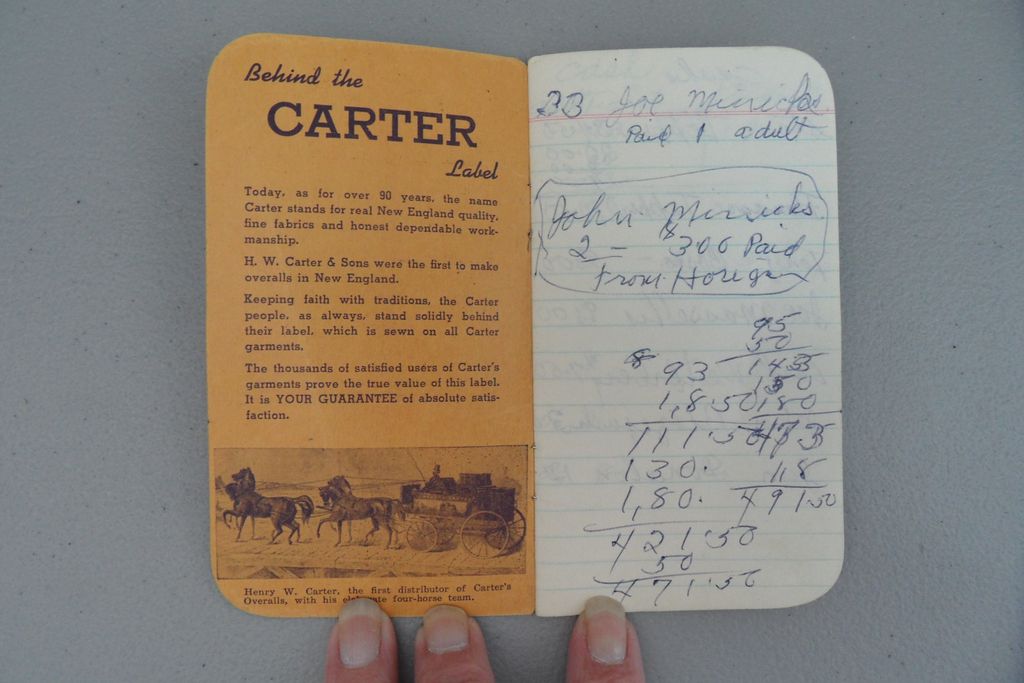 Behind the
CARTER
Label
Today, as for over 90 years, the name
Carter stands for real New England quality,
fine fabrics and honest dependable work-
manship.
H. W. Carter & Sons were the first to make
overalls in New England.
Keeping faith with traditions, the Carter
people, as always, stand solidly behind
their label, which is sewn on all Carter
garments.
The thousands of satisfied users of Carter's
garments prove the true value of this label.
It is YOUR GUARANTEE of absolute satis-
faction.
Henry W. Carter, the first distributor of Carter's
Overalls, with his elaborate four-horse team.
BB Joe
Paid 1 adult
John Minicks
2 - $300 Paid
From Horegan
95
50
$ 93
18.50 180
111.50
130. 18
1,80. 491.50
421.50
50
471.50